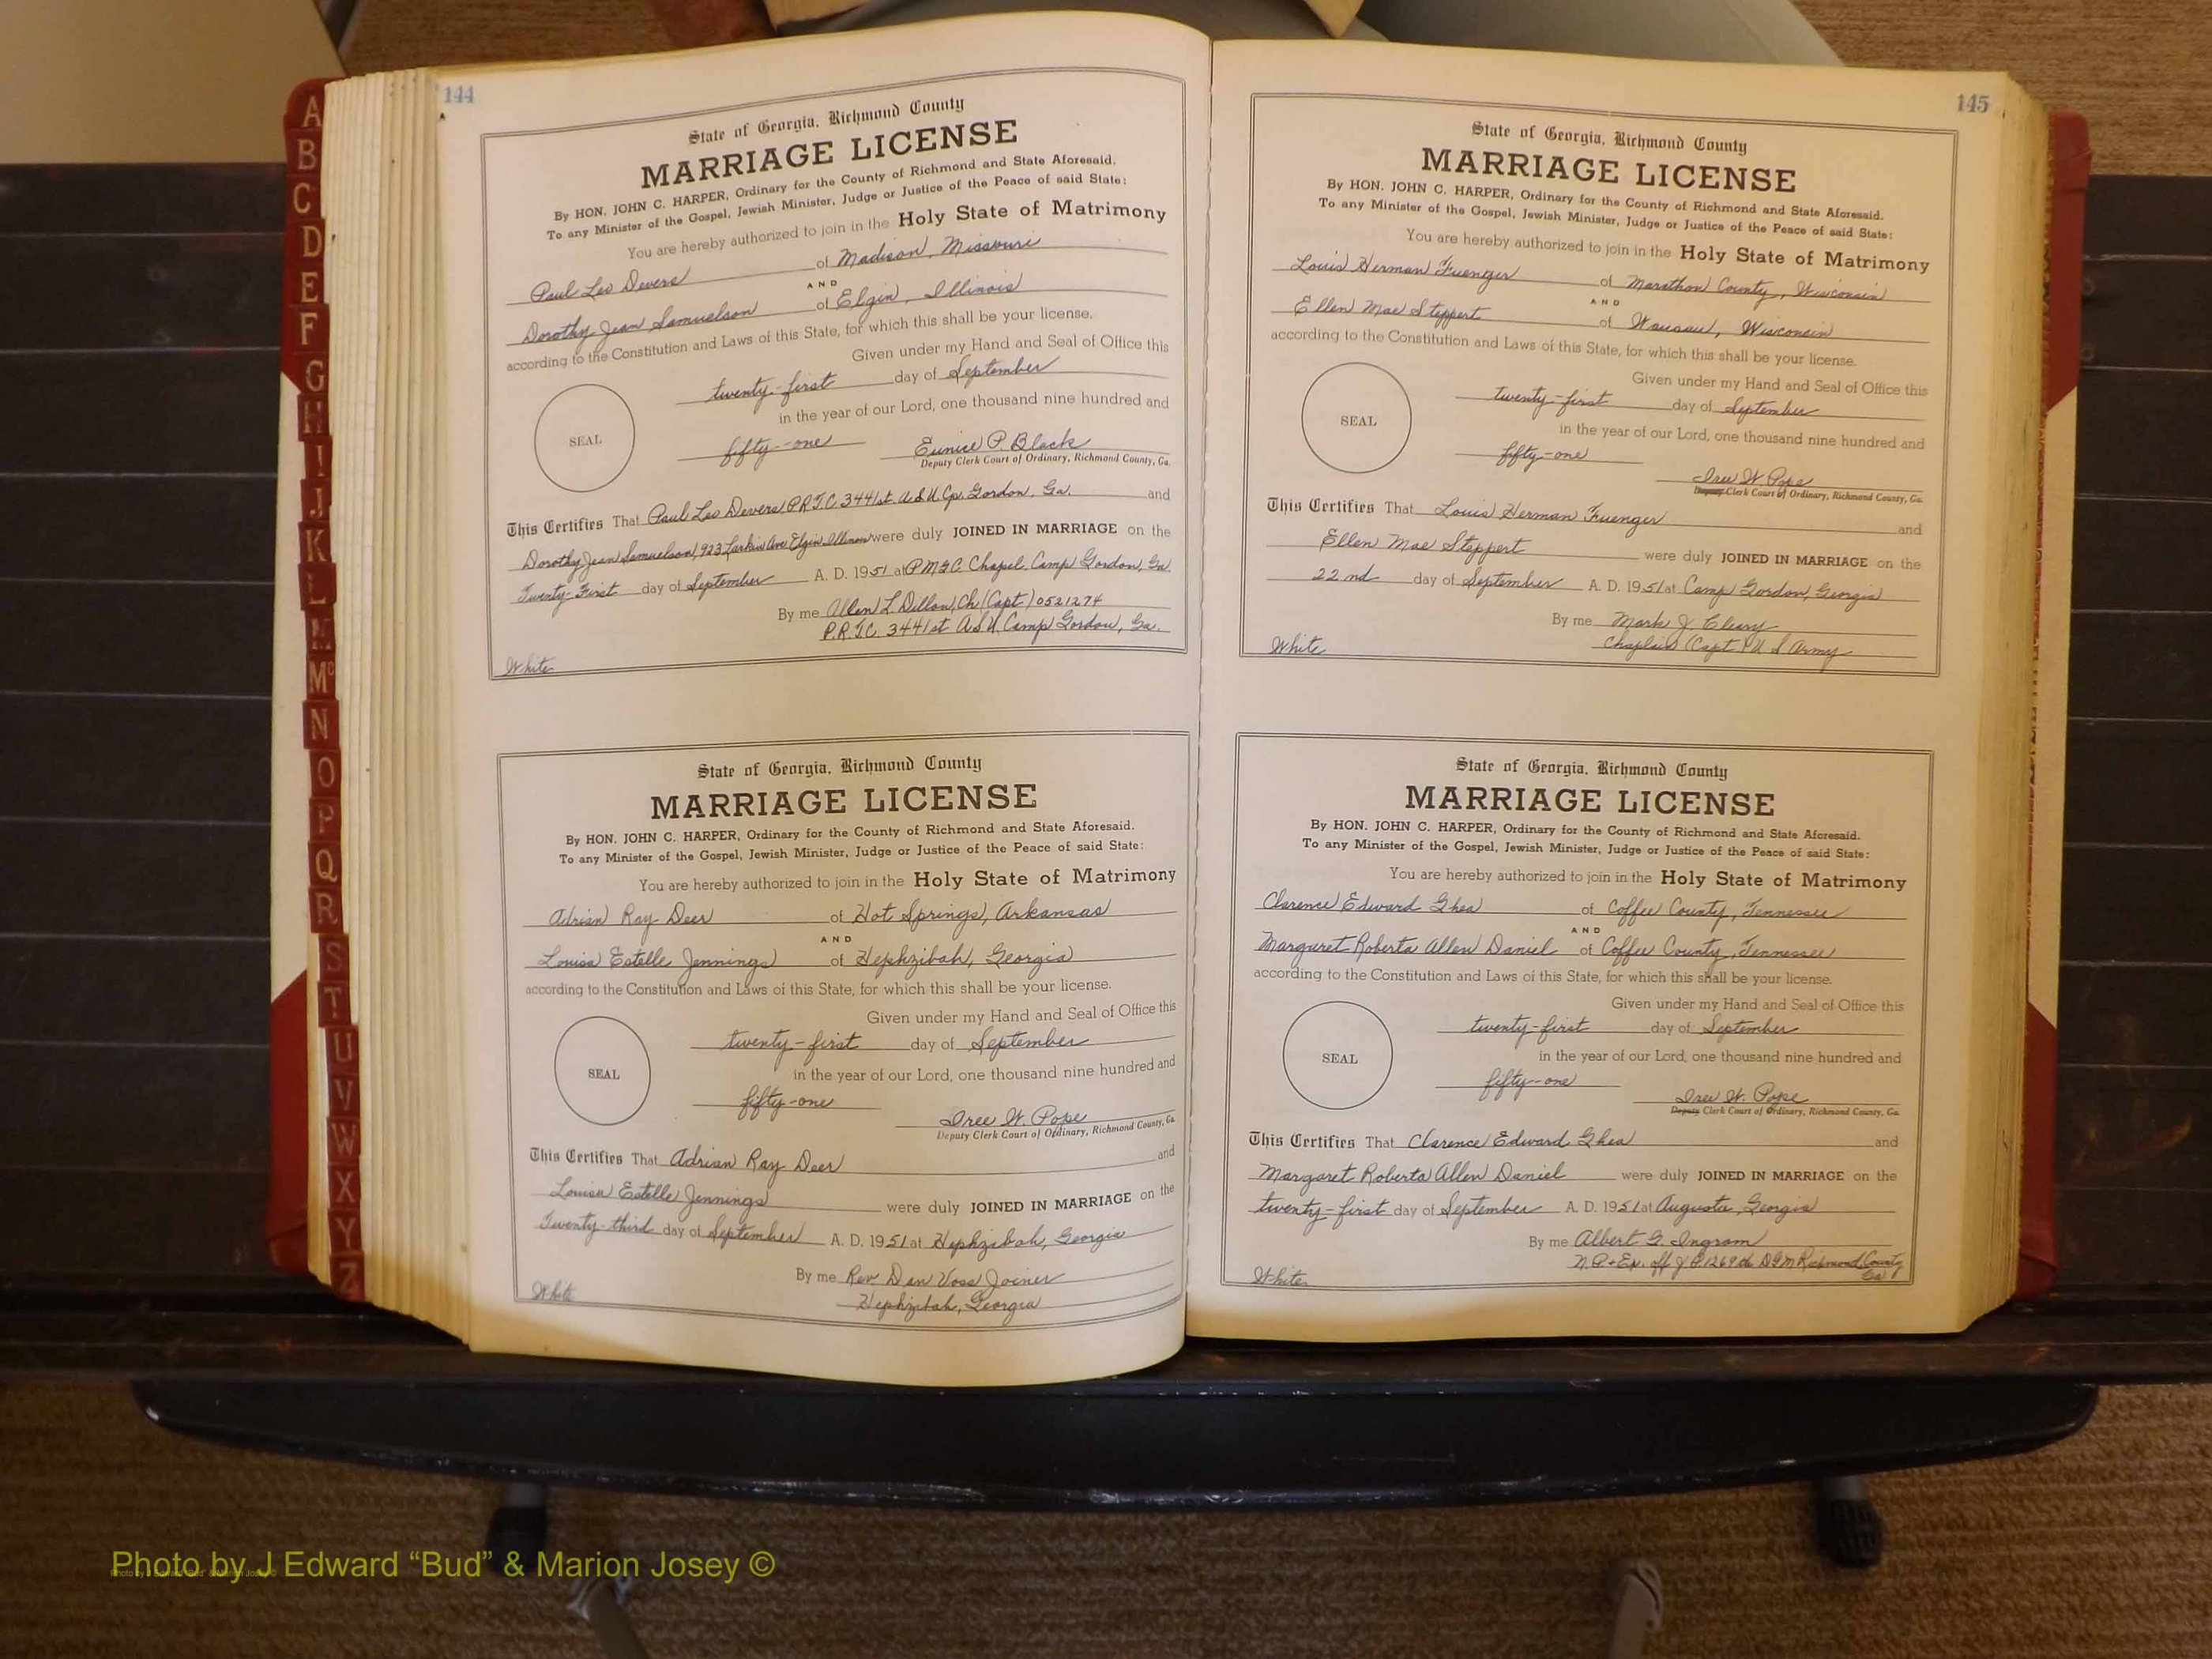 144
State of Georgia, Richmond County
MARRIAGE LICENSE
By HON. JOHN C. HARPER, Ordinary for the County of Richmond and State Aforesaid.
To any Minister of the Gospel, Jewish Minister, Judge or Justice of the Peace of said State:
You are hereby authorized to join in the Holy State of Matrimony
Paul Leo Devers of Madison, Missouri
AND
Dorothy Jean Samuelson of Elgin, Illinois
according to the Constitution and Laws of this State, for which this shall be your license.
Given under my Hand and Seal of Office this
twenty-first day of September
in the year of our Lord, one thousand nine hundred and
SEAL
fifty-one Eunice P. Black
Deputy Clerk Court of Ordinary, Richmond County, Ga.
This Certifies That Paul Leo Devers P.R.T.C. 3441st A.S.U. Cp. Gordon, Ga. and
Dorothy Jean Samuelson, 923 Larkin Ave Elgin Illinois were duly JOINED IN MARRIAGE on the
Twenty-First day of September A. D. 1951 at PMGC. Chapel, Camp Gordon, Ga.
By me Allen L Dillon, Ch (Capt) 0521274
P.R.T.C. 3441st A.S.U. Camp Gordon, Ga.
White
State of Georgia, Richmond County
MARRIAGE LICENSE
By HON. JOHN C. HARPER, Ordinary for the County of Richmond and State Aforesaid.
To any Minister of the Gospel, Jewish Minister, Judge or Justice of the Peace of said State:
You are hereby authorized to join in the Holy State of Matrimony
Adrian Ray Deer of Hot Springs, Arkansas
AND
Louisa Estelle Jennings of Hephzibah, Georgia
according to the Constitution and Laws of this State, for which this shall be your license.
Given under my Hand and Seal of Office this
twenty-first day of September
SEAL
in the year of our Lord, one thousand nine hundred and
fifty-one
Iree W. Pope
Deputy Clerk Court of Ordinary, Richmond County, Ga.
This Certifies That Adrian Ray Deer and
Louisa Estelle Jennings were duly JOINED IN MARRIAGE on the
Twenty-third day of September A. D. 1951 at Hephzibah, Georgia
By me Rev. Dan Voss Joiner
Hephzibah, Georgia
White
145
State of Georgia, Richmond County
MARRIAGE LICENSE
By HON. JOHN C. HARPER, Ordinary for the County of Richmond and State Aforesaid.
To any Minister of the Gospel, Jewish Minister, Judge or Justice of the Peace of said State:
You are hereby authorized to join in the Holy State of Matrimony
Louis Herman Fuenger of Marathon County, Wisconsin
AND
Ellen Mae Steppert of Wausau, Wisconsin
according to the Constitution and Laws of this State, for which this shall be your license.
Given under my Hand and Seal of Office this
twenty-first day of September
SEAL
in the year of our Lord, one thousand nine hundred and
fifty-one
Iree W. Pope
Deputy Clerk Court of Ordinary, Richmond County, Ga.
This Certifies That Louis Herman Fuenger and
Ellen Mae Steppert were duly JOINED IN MARRIAGE on the
22nd day of September A. D. 1951 at Camp Gordon, Georgia
By me Mark J. Cleary
Chaplain (Capt) U S Army
White
State of Georgia, Richmond County
MARRIAGE LICENSE
By HON. JOHN C. HARPER, Ordinary for the County of Richmond and State Aforesaid.
To any Minister of the Gospel, Jewish Minister, Judge or Justice of the Peace of said State:
You are hereby authorized to join in the Holy State of Matrimony
Clarence Edward Ghea of Coffee County, Tennessee
AND
Margaret Roberta Allen Daniel of Coffee County, Tennessee
according to the Constitution and Laws of this State, for which this shall be your license.
Given under my Hand and Seal of Office this
twenty-first day of September
SEAL
in the year of our Lord, one thousand nine hundred and
fifty-one
Iree W. Pope
Deputy Clerk Court of Ordinary, Richmond County, Ga.
This Certifies That Clarence Edward Ghea and
Margaret Roberta Allen Daniel were duly JOINED IN MARRIAGE on the
twenty-first day of September A. D. 1951 at Augusta, Georgia
By me Albert G. Ingram
N.P. & Ex. off J.P. 1269th D G M Richmond County
Ga
White
A
B
C
D
E
F
G
H
I
J
K
L
M
Mc
N
O
P
Q
R
S
T
U
V
W
X
Y
Z
Photo by J Edward “Bud” & Marion Josey ©
Photo by J Edward "Bud" & Marion Josey ©